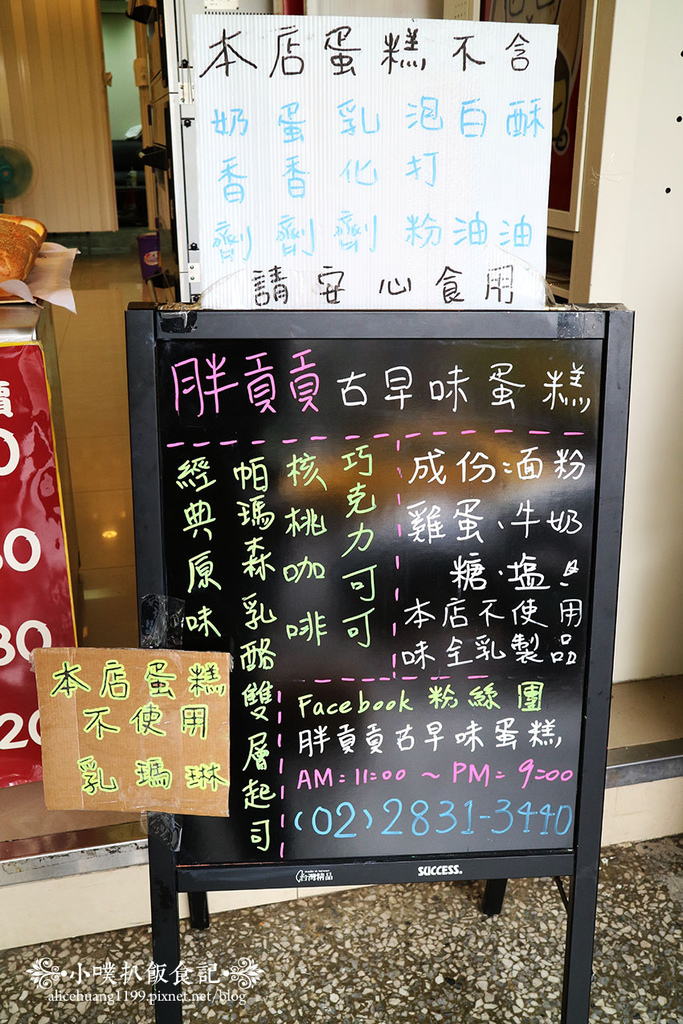 本店蛋糕不含
奶香劑
蛋香劑
乳化劑
泡打粉
白油
酥油
請安心食用
胖貢貢古早味蛋糕
成份:面粉
雞蛋、牛奶
糖、塩
本店不使用
味全乳製品
巧克力可可
核桃咖啡
帕瑪森乳酪雙層起司
經典原味
Facebook 粉絲團
胖貢貢古早味蛋糕
AM=11:00 ~ PM=9:00
(02)2831-3440
本店蛋糕
不使用
乳瑪琳
台灣精品
SUCCESS.
小噗扒飯食記
alicehuang1199.pixnet.net/blog